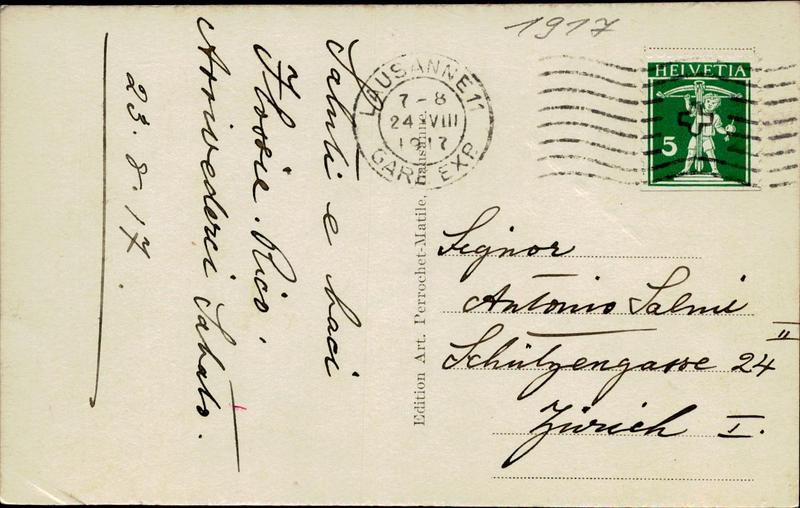 1917
LAUSANNE 11
7-8
24 VIII
1917
GARE EXP.
HELVETIA
5
Saluti e baci
Flossie. Rico.
Arrivederci Sabato.
23.8.17.
Edition Art. Perrochet-Matile, Lausanne
Signor
Antonio Salmi
Schützengasse 24 II
Zürich I.